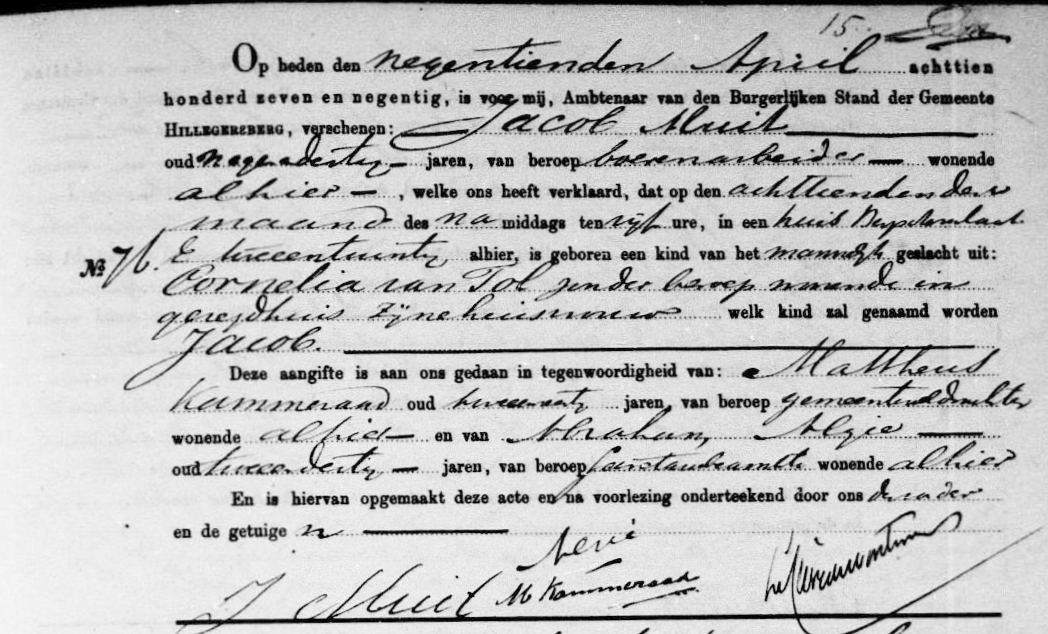 15.
Op heden den negentienden April achttien
honderd zeven en negentig, is voor mij, Ambtenaar van den Burgerlijken Stand der Gemeente
HILLEGERSBERG, verschenen: Jacob Muit
oud negendertig jaren, van beroep boerenarbeider wonende
alhier, welke ons heeft verklaard, dat op den achttienden dezer
maand des na middags ten vijf ure, in een huis
No 76. E tweeentwintig alhier, is geboren een kind van het mannelijk geslacht uit:
Cornelia van Tol zonder beroep wonende in
gezegdhuis zijne huisvrouw welk kind zal genaamd worden
Jacob.
Deze aangifte is aan ons gedaan in tegenwoordigheid van: Mattheus
Kammeraad oud jaren, van beroep
wonende alhier en van Abraham
oud tweeendertig jaren, van beroep wonende alhier
En is hiervan opgemaakt deze acte en na voorlezing onderteekend door ons de vader
en de getuige n
J Muit M Kammeraad